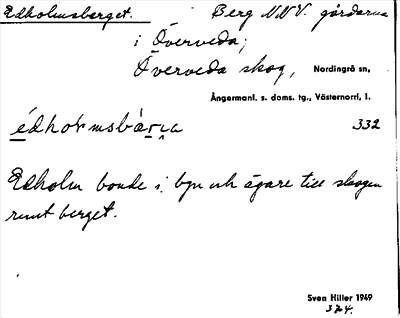 Edholmsberget. Berg NNV. gårdarna
i Överveda;
Överveda skog, Nordingrå sn,
Ångermanl. s. doms. tg., Västernorrl. l.
332
Edholm bonde i byn och ägare till skogen
runt berget.
Sven Hiller 1949
374.